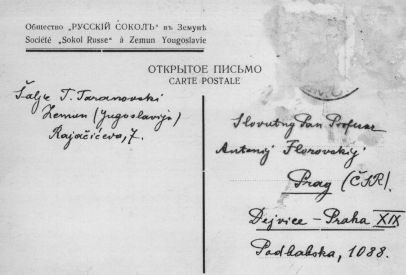 Общество „РУССКІЙ СОКОЛЪ" въ Земунѣ
Société „Sokol Russe" à Zemun Yougoslavie
ОТКРЫТОЕ ПИСЬМО
CARTE POSTALE
Šalje T. Taranovski
Zemun (Yugoslavija)
Rajačićeva, 7.
Slovutny Pan Profesor
Antonij Florovskij
Prag (ČSR).
Dejvice – Praha XIX
Podbabska, 1088.